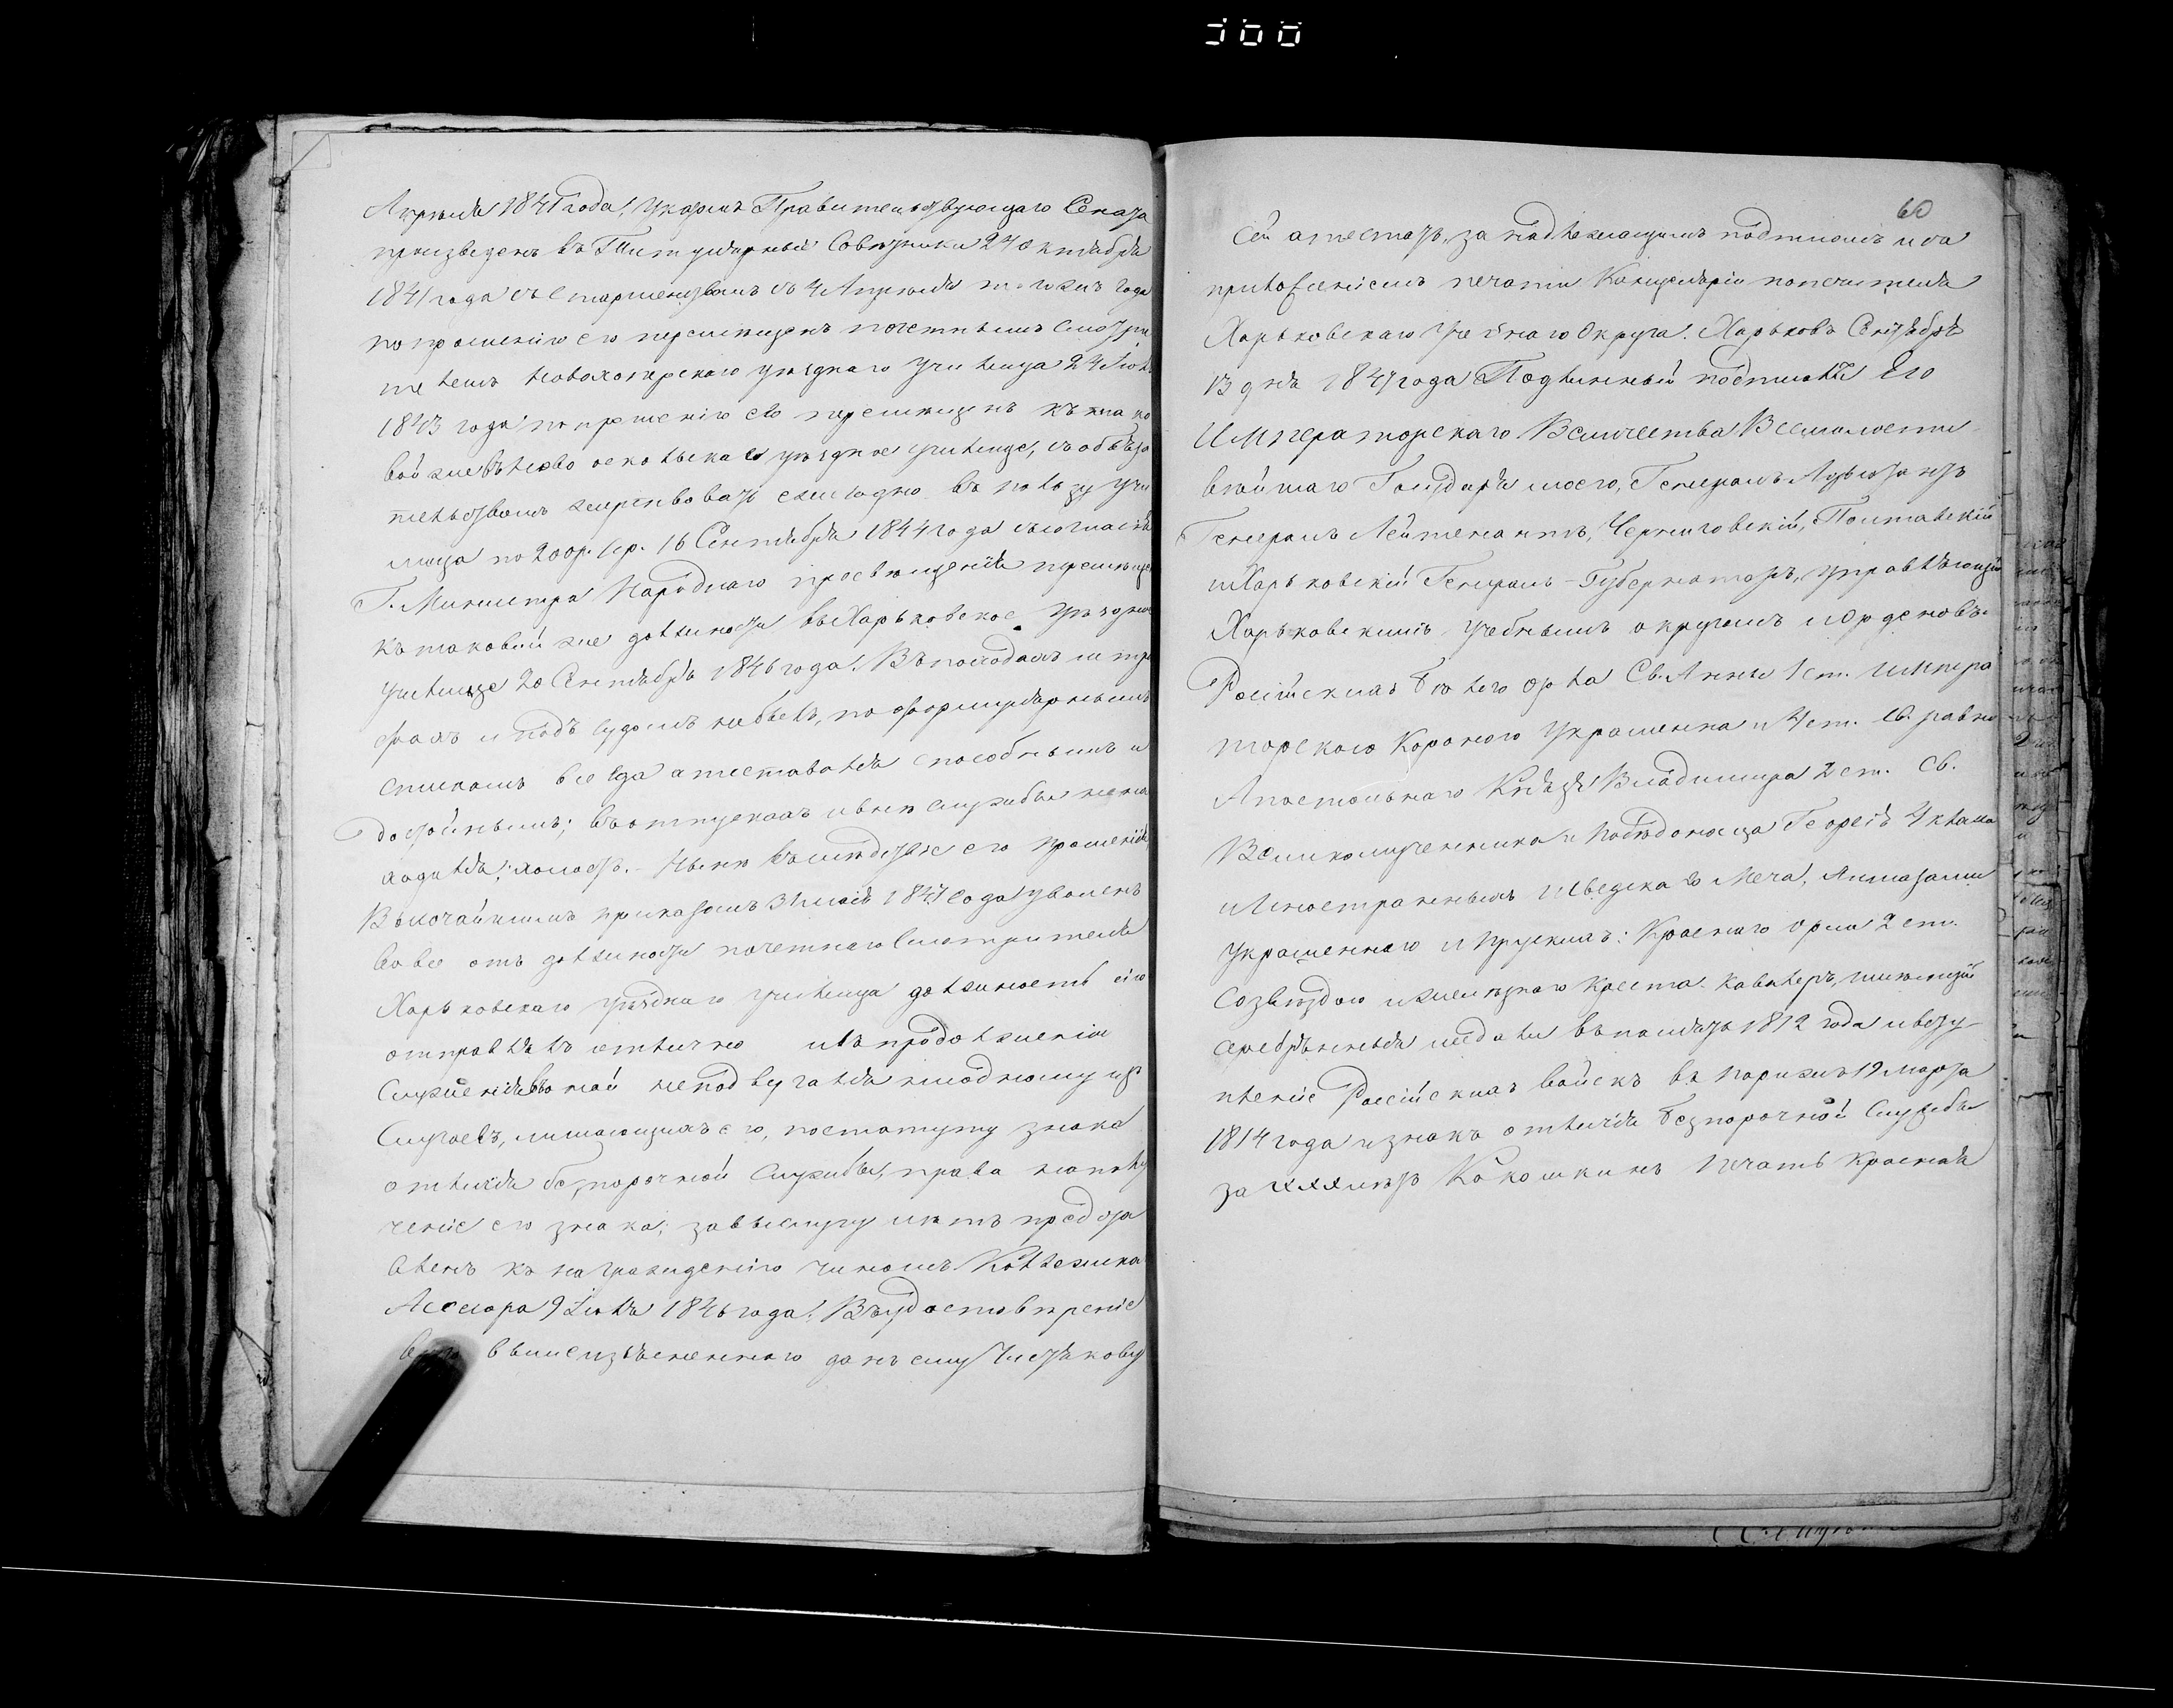 Апрѣля 1841 года, указомъ Правительствующаго Сената
произведенъ въ Титулярные Совѣтники 24 октября
1841 года со старшинствомъ съ 4 Апрѣля того жъ года
по прошенію его перемѣщенъ почетнымъ Смотри
телемъ Новохоперскаго уѣзднаго Училища 24 Іюля
1843 года по прошенію его перемѣщенъ къ тако
вой же въ Новооскольское уѣздное училище, съ обяза
тельствомъ жертвовать ежегодно въ пользу учи
лища по 200 р. сер. 16 Сентября 1844 года съ согласія
Г. Министра Народнаго просвѣщенія перемѣще
къ таковой же должности въ Харьковское уѣздное
училище 20 Сентября 1846 года. Въ походахъ штра
фахъ и подъ судомъ не былъ, по формулярнымъ
спискамъ всегда аттестовался способнымъ и
достойнымъ; въ отпускахъ и внѣ службы не на
ходился; холостъ. Нынѣ вслѣдствіе его прошенія
Высочайшимъ приказомъ 3 Іюля 1847 года уволенъ
вовсе отъ должности почетнаго Смотрителя
Харьковскаго уѣзднаго училища должность сію
отправлялъ отлично и въ продолженіи
Служенія оной неподвергался ни одному изъ
Случаевъ, лишающихъ его, по статуту знака
отличія безпорочной Службы, права на полу
ченіе его знака; за выслугу лѣтъ предста
вленъ къ награжденію чиномъ Коллежска
Ассесора 9 Іюля 1846 года. Въ удостовѣреніе
выше изъясненнаго данъ ему Чистякову
60
Сей атестатъ, за надлежащимъ подписомъ и съ
приложеніемъ печати Канцеляріи попечителя
Харьковскаго Учебнаго Округа. Харьковъ Сентября
13 дня 1847 года Подлинный подписалъ Его
Императорскаго Величества Всемилости
вѣйшаго Государя моего, Генералъ-Адъютантъ
Генералъ Лейтенантъ, Черниговскій, Полтавскій
и Харьковскій Генералъ-Губернаторъ, управляющій
Харьковскимъ учебнымъ округомъ и Орденовъ
Россійскихъ Бѣлаго орла Св. Анны 1 ст. Импера
торскою Короною украшенна и 4 ст. Св. равно
Апостольнаго Князя Владимира 2 ст. Св.
Великомученника и Побѣдоносца Георгія 4 класа
и Иностранныхъ Шведскаго Меча, Алмазами
украшеннаго и Прускихъ: Краснаго орла 2 ст.
Со звѣздою и желѣзнаго Креста Кавалеръ, имѣющій
серебрянныя медали въ память 1812 года и всту
пленіе Россійскихъ войскъ въ Парижъ 19 Марта
1814 года и знакъ отличія безпорочной Службы
за ХХХ лѣтъ Кокошкинъ Печать Красная